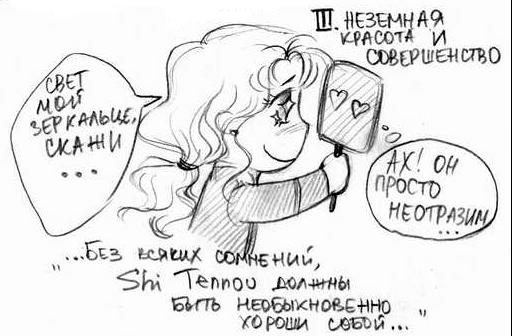 III. НЕЗЕМНАЯ
КРАСОТА И
СОВЕРШЕНСТВО
СВЕТ
МОЙ
ЗЕРКАЛЬЦЕ,
СКАЖИ
...
АХ! ОН
ПРОСТО
НЕОТРАЗИМ
...
"...БЕЗ ВСЯКИХ СОМНЕНИЙ,
Shi Tennou ДОЛЖНЫ
БЫТЬ НЕОБЫКНОВЕННО
ХОРОШИ СОБОЙ..."